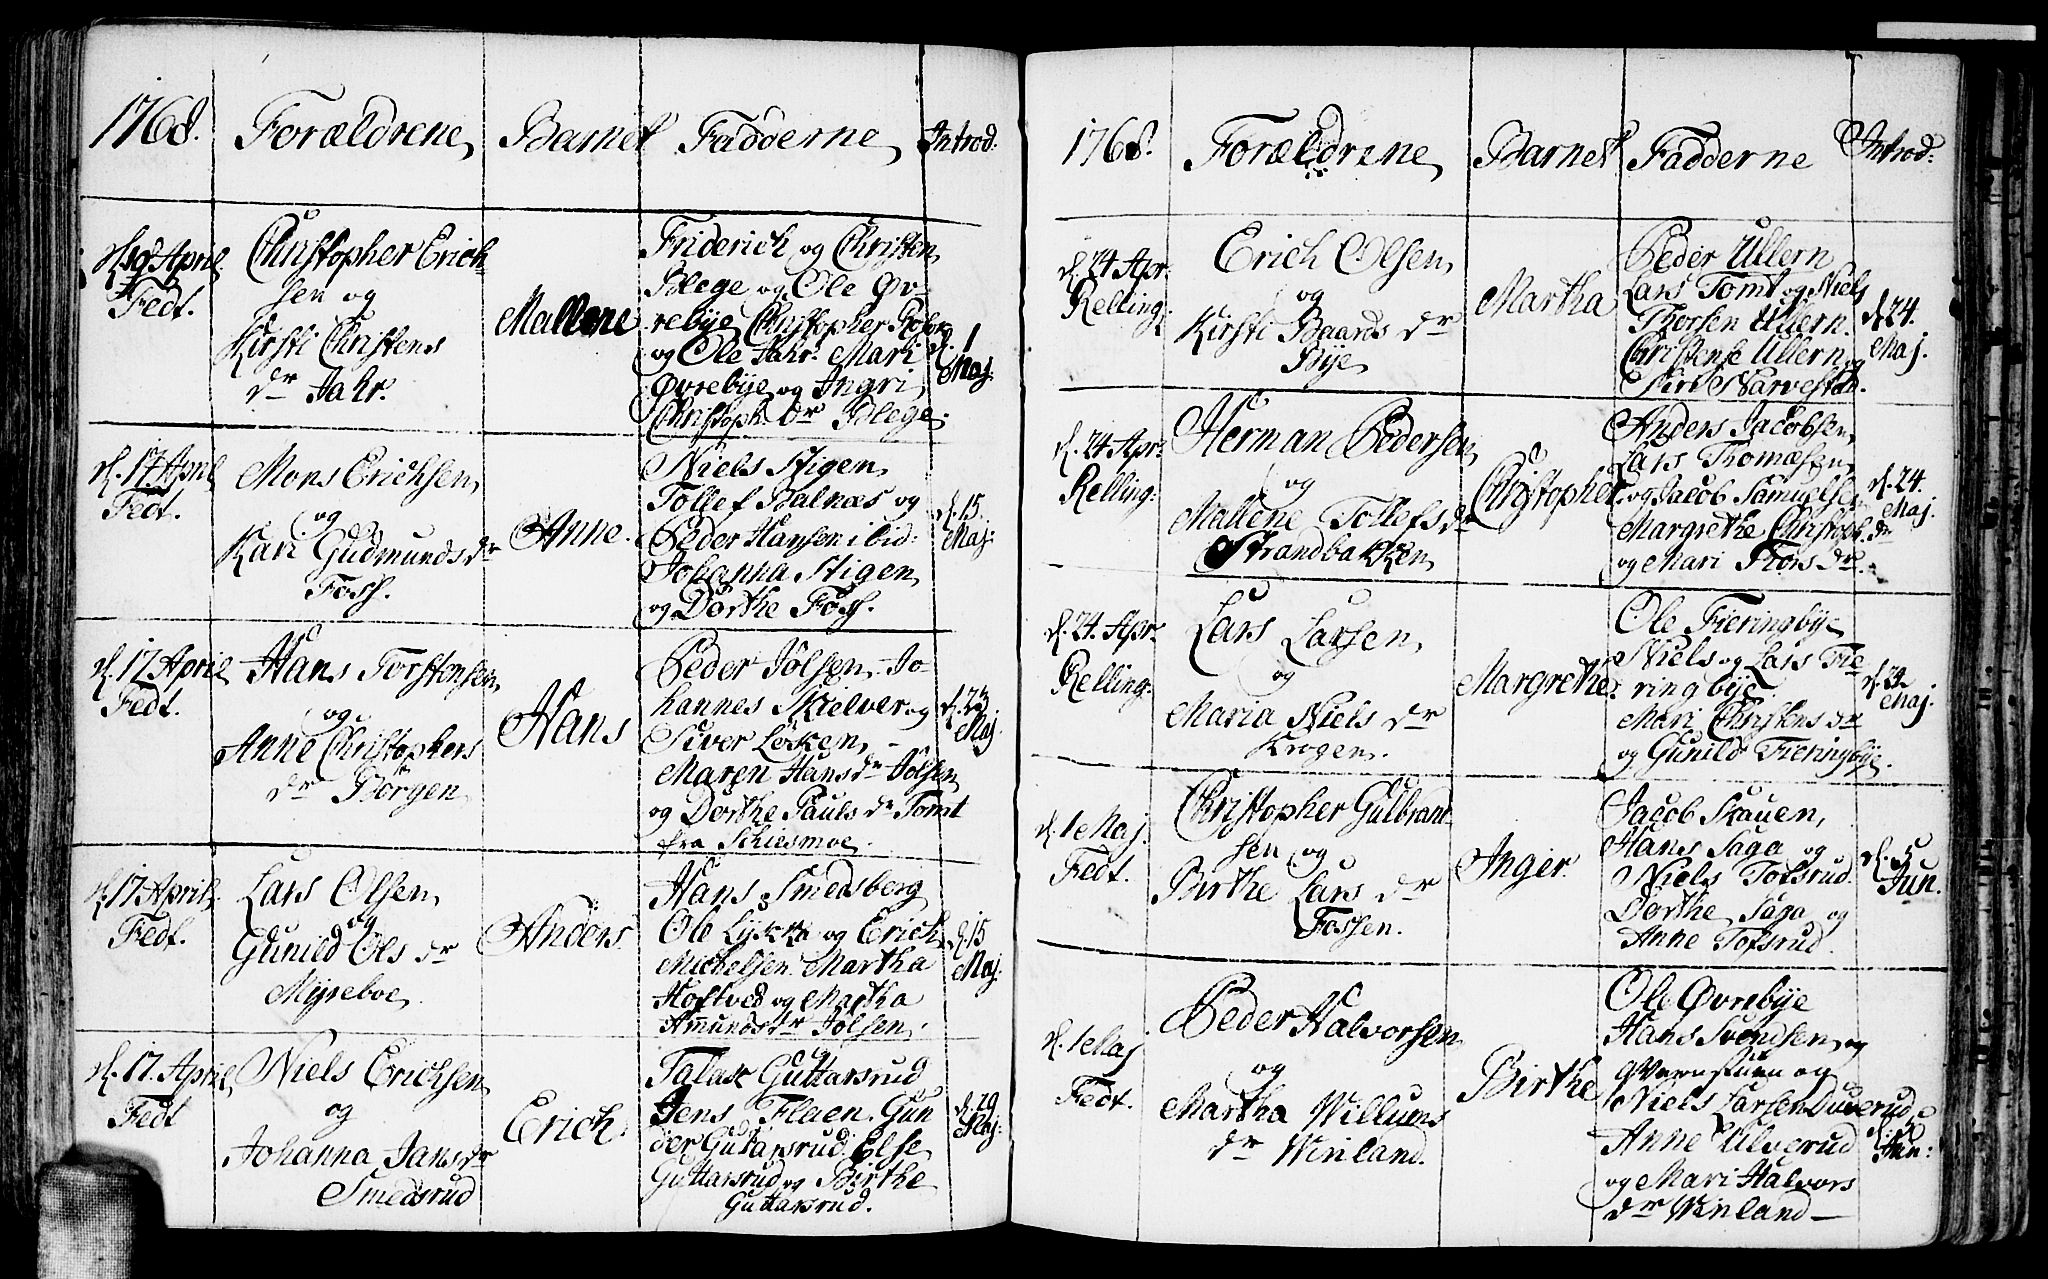 1768.
Forældrene
Barnet
Fadderne
Introd.
d. 10 April
Fedt.
Christopher Erich
sen og
Kirsti Christens
dr Jahr.
Mallene
Friderich og Christen
Blege og Ole Øv-
rebye Christopher
og Ole Jahr. Mari
Øvrebye og Ingri
Christoph. dr Blege.
d. 1
Maj.
d. 17 April
Fedt.
Mons Erichsen
og
Kari Gudmunds dr
Foss.
Anne.
Niels Stigen
Tollef Balnæs og
Peder Hansen ibid:
Johanna Stigen
og Dorthe Foss.
d. 15.
Maj:
d. 17 April
Fedt.
Hans Torstensen
og
Anne Christophers
dr Børgen
Hans
Peder Jølsen - Jo-
hannes Skielver og
Siver Løken -
Maren Hans dr Jølsen
og Dorthe Pauls dr Tomt
fra Schiesmoe.
d. 23
Maj.
d. 17 April
Fedt.
Lars Olsen
og
Gunild Ols dr
Myreboe
Anders.
Hans Smedsberg
Ole Lykke og Erich
Michelsen. Martha
Hoftved og Martha
Amunds dr Jølsen.
d. 15
Maj.
d. 17. April
Fedt
Niels Erichsen
og
Johanna Jans dr
Smedsrud
Erich.
Talax Guttarsrud
Jens Flaen. Gun
der Guttarsrud. Else
Guttarsrud og Birthe
Guttarsrud.
d. 29
Maj.
1768.
Forældrene
Barnet
Fadderne
Introd:
d. 24 Apr.
Relling:
Erich Olsen
og
Kirsti Baards dr
Bye
Martha
Peder Ullern
Lars Tomt og Niels
Thorsen Ullern.
Christense Ullern og
Siri Narvestad.
d. 24.
Maj.
d. 24 Apr:
Relling:
Herman Pedersen
og
Mallene Tollefs dr
Strandbakken
Christopher
Anders Jacobsen
Lars Thomæsen
og Jacob Samuelsen
Margrethe Christoph. dr
og Mari Thors dr.
d. 24.
Maj.
d. 24. Apr.
Relling:
Lars Larsen
og
Maria Niels dr
Krogen.
Margrethe.
Ole Fieringbye
Niels og Lars Fie
ringbye.
Mari Christens dr
og Gunild Fieringbye.
d. 29
Maj.
d. 1 Maj
Fedt.
Christopher Gulbrand-
sen og
Birthe Lars dr
Fossen.
Inger.
Jacob Skauen
Hans Saga og
Niels Tofsrud.
Dorthe Saga og
Anne Tofsrud.
d. 5
Jun.
d. 1 Maj
Fedt.
Peder Halvorsen
og
Martha Willums
dr Winland.
Birthe
Ole Øvrebye
Hans Svendsen og
og
Niels Larsen
Anne Ulverud
og Mari Halvors
dr Winland -
d. 12
Jun: